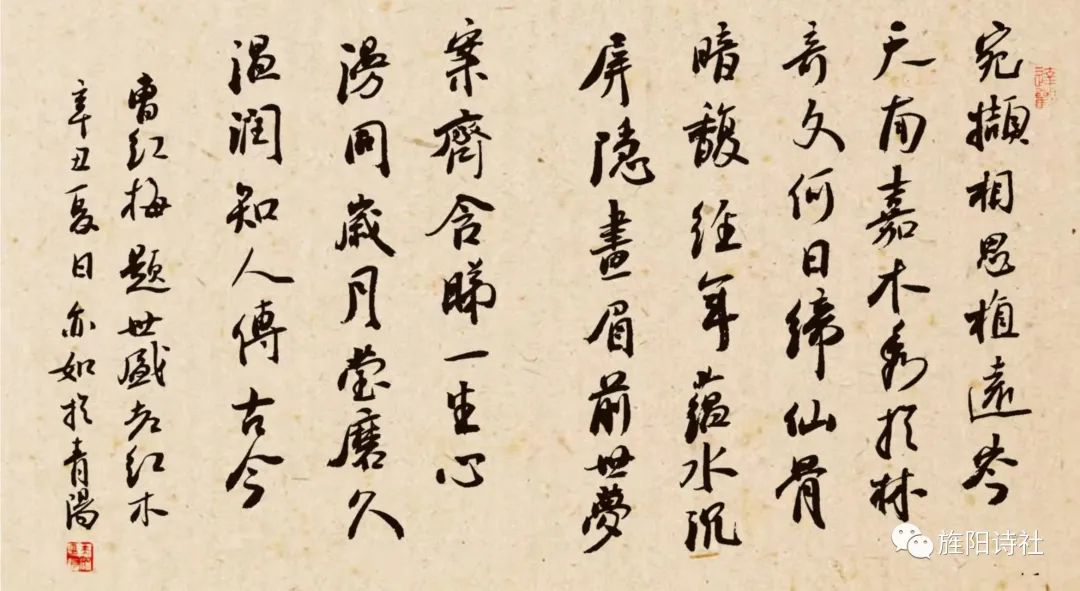 宛擷相思植遠岑
天南嘉木秀於林
奇文何日締仙骨
暗馥经年蕴水沉
屏隱畫眉前世夢
案齊含睇一生心
漫同歲月瑩磨久
温润知人傳古今
曹红梅 題世盛老红木
辛丑夏日亦如於青陽
旌阳诗社